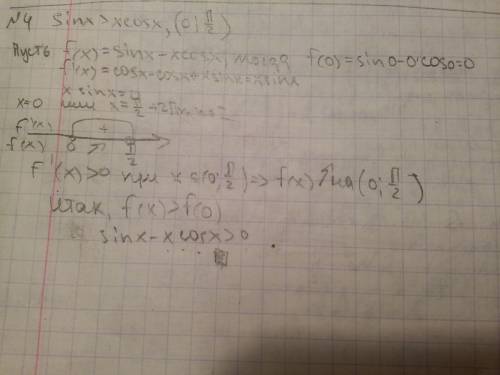 №4 sinx>xcosx, (0; π/2)
Пусть f(x)=sinx-xcosx, тогда f(0)=sin0-0·cos0=0
f'(x)=cosx-cosx+xsinx=xsinx
x sinx=0
x=0 или x=π/2+2πn, n∈Z
f'(x) +
f(x) 0 ↗ π/2
f'(x)>0 при x∈(0; π/2)=> f(x)↗на(0; π/2)
Итак, f(x)>f(0)
sinx-xcosx>0